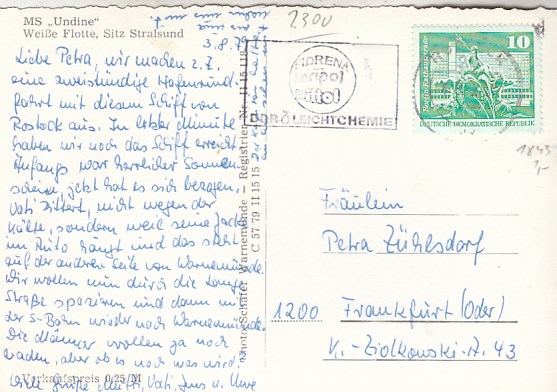 MS „Undine"
Weiße Flotte, Sitz Stralsund
3.8.79
Liebe Petra, wir machen z.Z.
eine zweistündige Hafenrund-
fahrt mit diesem Schiff von
Rostock aus. In letzter Minute
haben wir noch das Schiff erreicht
Anfangs war herrlicher Sonnen-
schein, jetzt hat es sich bezogen.
Vati zittert, nicht wegen der
Kälte, sondern weil seine Jacke
im Auto hängt und das steht
auf der anderen Seite von Warnemünde.
Wir wollen nun durch die Lange
Straße spazieren und dann mit
der S-Bahn wieder nach Warnemünde.
Die Männer wollen ja noch
baden, aber ob es noch was wird.
Viele Grüße Mutti, Vati, Jens u. Uwe
Verkaufspreis 0,25 M
Photo-Schäfer Warnemünde – Registrier-Nr. 11 15 118
C 57 79 11 15 15
2300
FIORENA
BÜROLEICHTCHEMIE
10
DEUTSCHE DEMOKRATISCHE REPUBLIK
1845
1,-
Fräulein
Petra Zühlsdorf
1200 Frankfurt (Oder)
K.-Ziolkowski-A. 43